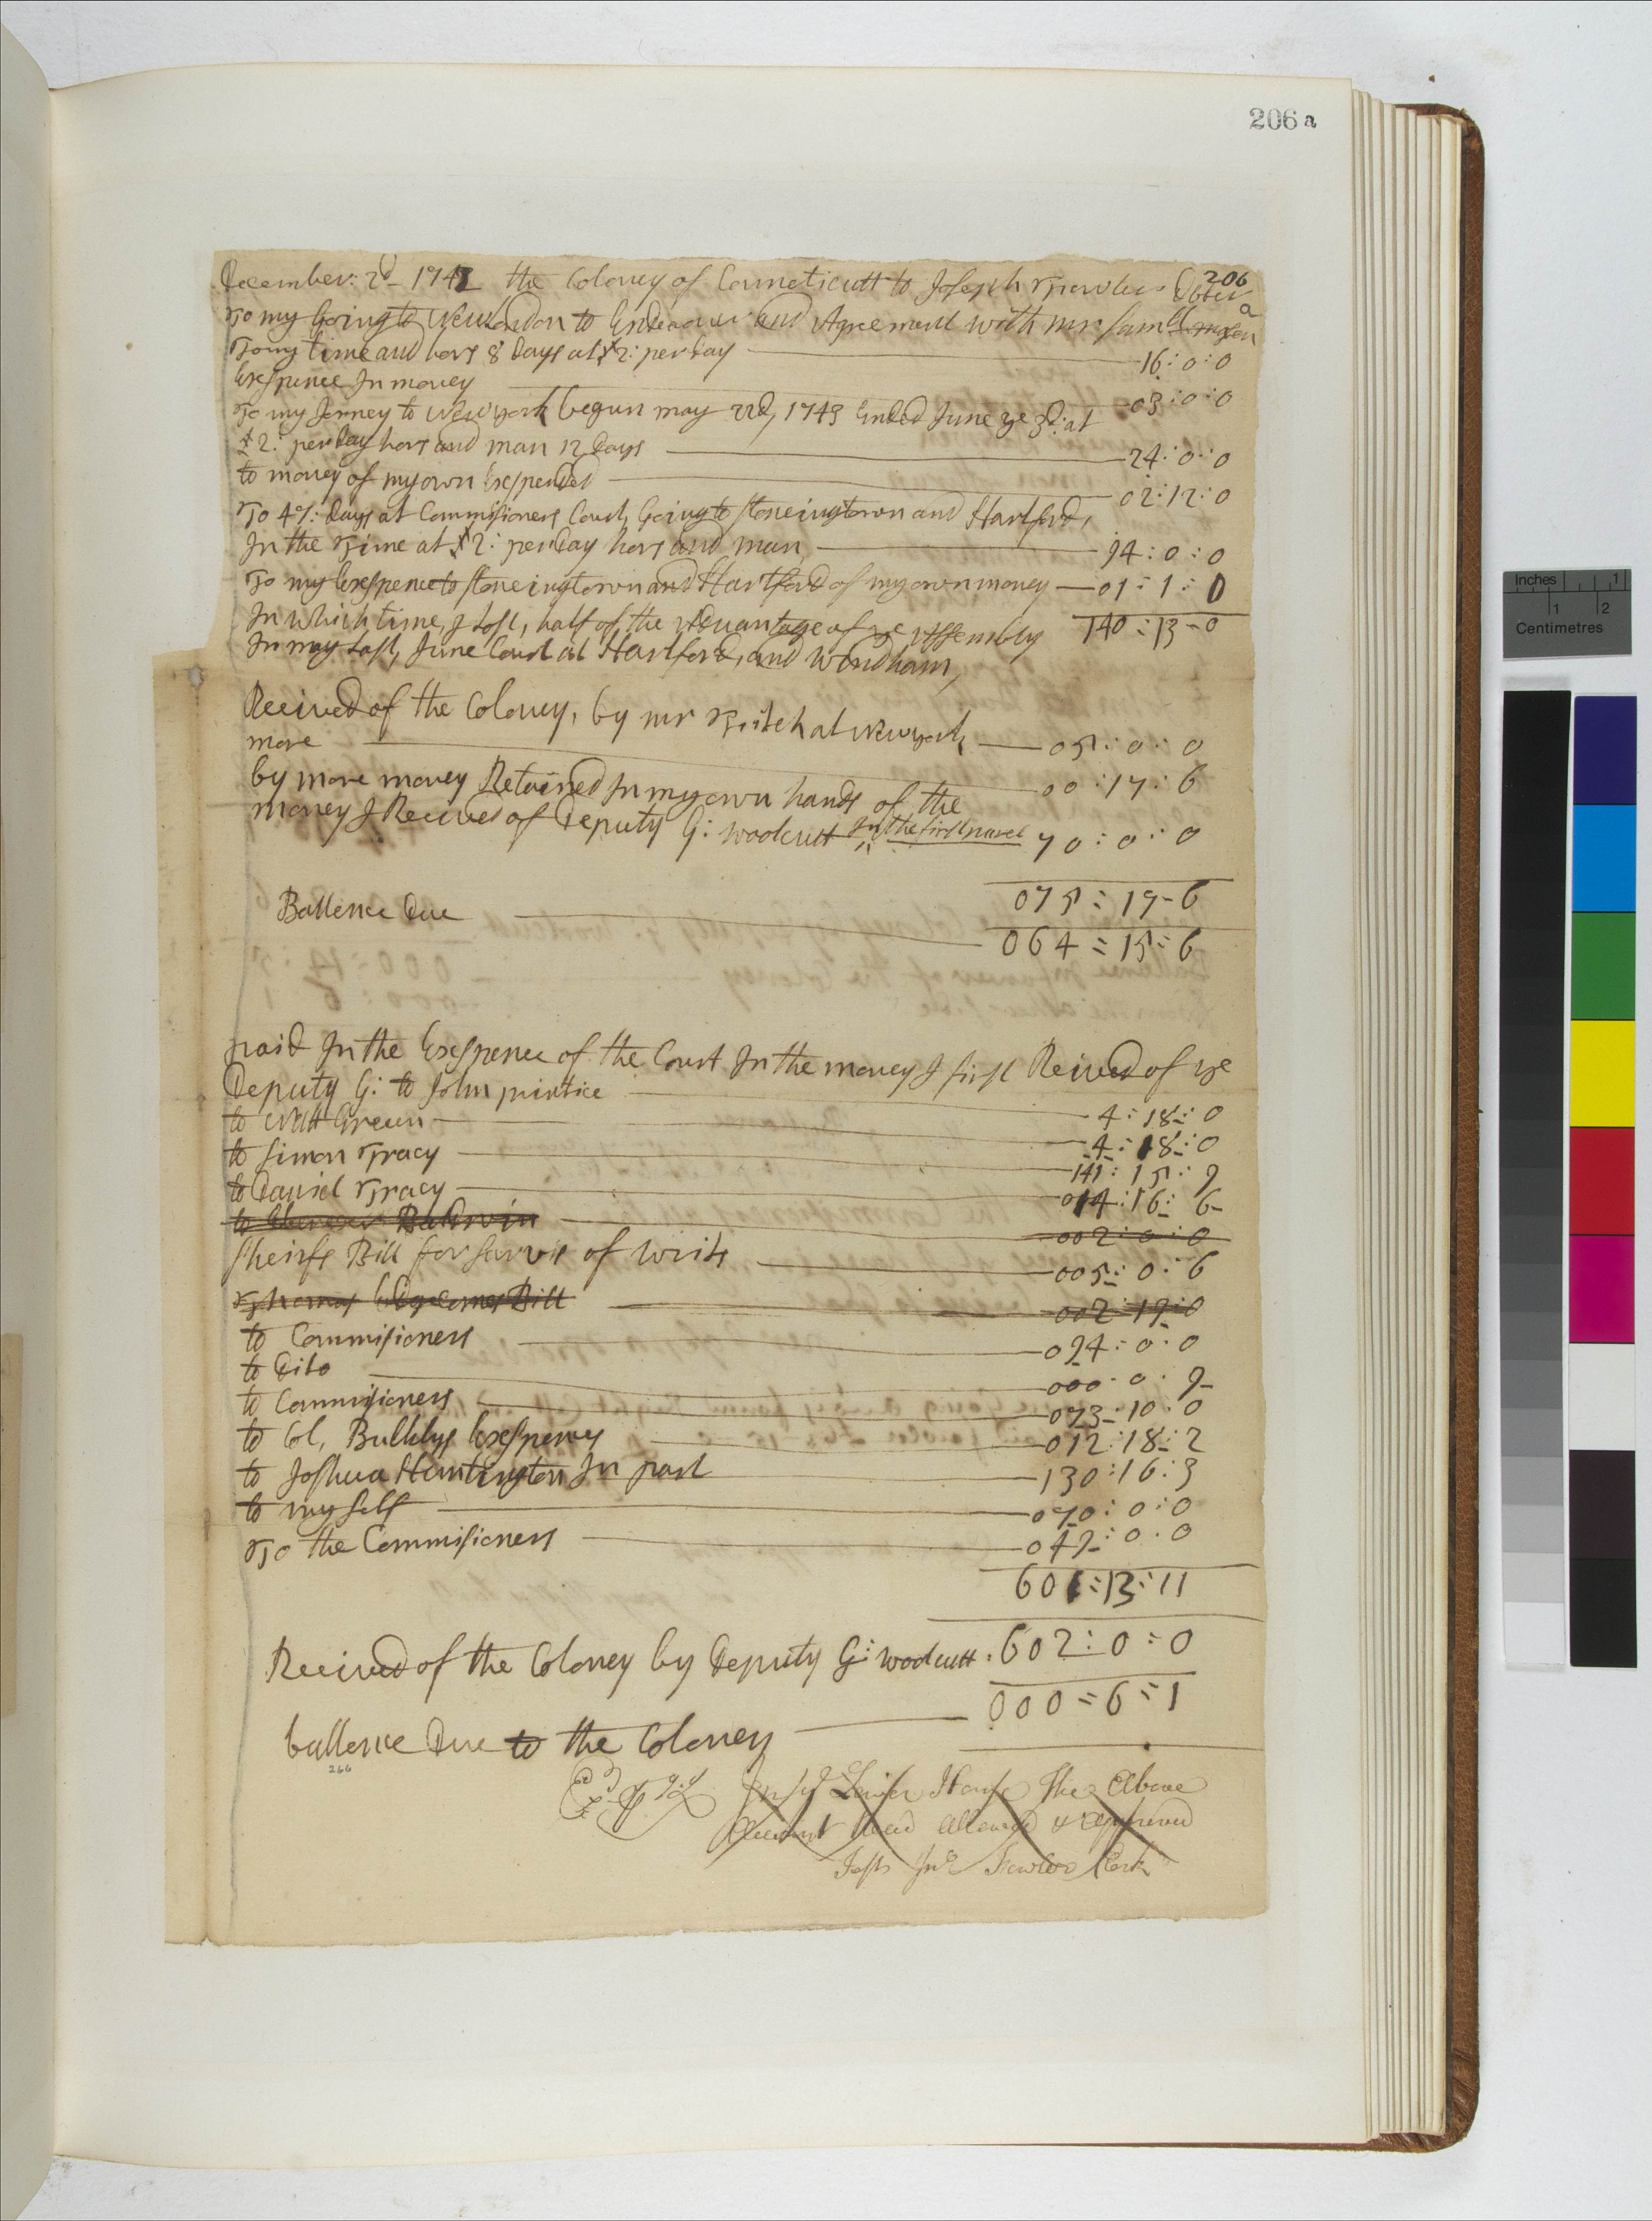 206 a
206
a
December: 2d 1742 the Coloney of Conneticutt to Joseph Fowler Debter
To my Going to Newlondon to Endeavour and Agreement with mr Samll mason
To my time and hors 8 Days at £2: per Day 16:0:0
Exspence In money 03:0:0
To my Jorney to Newyork begun may 22d, 1743 Ended June ye 3d: at
£2: per Day hors and man 12 Days 24:0:0
to money of my own Exspended 02:12:0
To 47: Days at Commisioners Court, Going to Stoneingtown and Hartford,
In the Time at £2: per Day hors and man, 94:0:0
To my Exspence to Stoneingtown and Hartford of my own money 01:1:0
In Which time, I Lost, half of the Advantage of ye Assembly 140:13-0
In may Last, June Court at Hartford, and Windham,
Received of the Coloney, by mr Fitch at Newyork, 05:0:0
more 00:17:6
by more money Retained In my own hands of the
money I Received of Deputy G: Woolcutt In the first parcel 70:0:0
075:17-6
Ballence Due 064:15:6
paid In the Exspence of the Court In the money I first Reived of ye
Deputy G: to John printice 4:18:0
to Will Green 4:18:0
to Simon Tracy 141:15:9
to Daniel Tracy 014:16:6
to Ebenezer Baldwin 002:0:0
Sheirfs Bill for Survis of Writs 005:0:6
Thomas Edgcomes Bill 002:19:0
to Commisioners 094:0:0
to Dito 000:0:9
to Commisioners 073:10:0
to Col, Bulklys Exspences 012:18:2
to Joshua Huntington In part 130:16:3
to my Self 070:0:0
To the Commisioners 049:0:0
601:13:11
Received of the Coloney by Deputy G: Woolcutt. 602:0:0
000=6=1
ballence Due to the Coloney
266
In ye Lower House The Above
Account Read Allowed & Approved
Test Jno Fowler Clerk
Inches 1
1 2
Centimetres